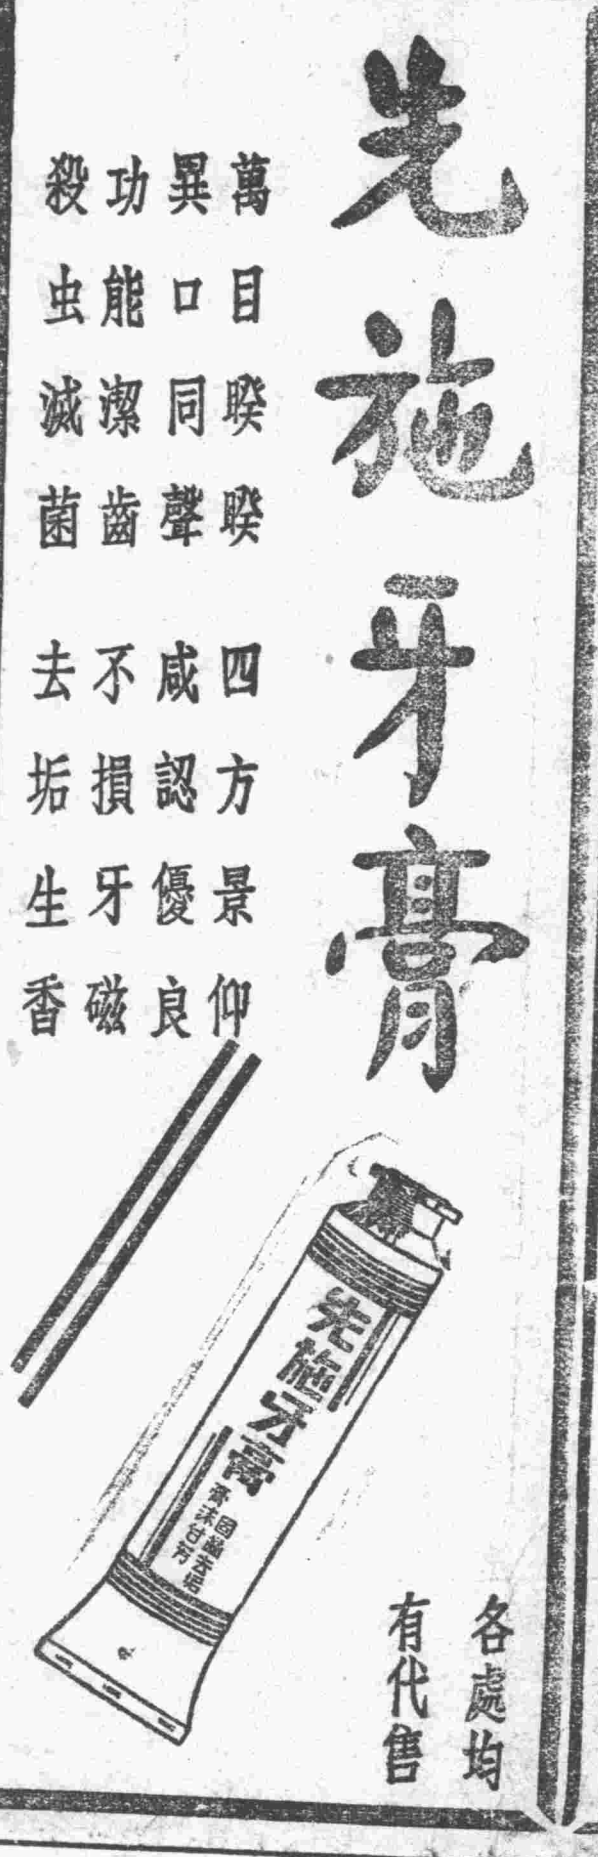 先施牙膏
萬目睽睽 四方景仰
異口同聲 咸認優良
功能潔齒 不損牙磁
殺虫滅菌 去垢生香
先施牙膏
固齒去垢
香沫甘芳
各處均
有代售